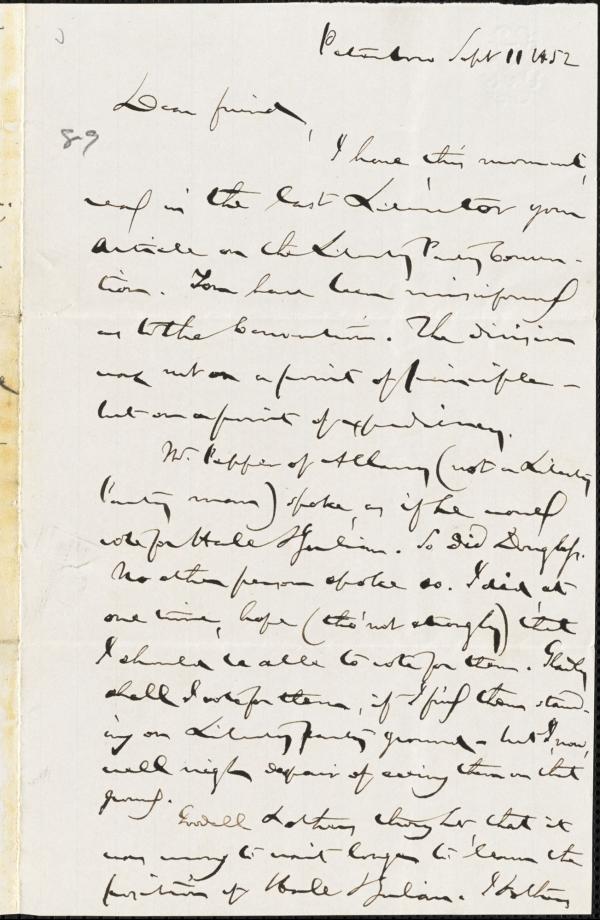 Peterboro Sept 11 1852
Dear friend,
89
I have, this moment,
read in the last Liberator your
article on the Liberty Party Conven-
tion. You have been misinformed
as to the Convention. The division
was not on a point of principle -
but on a point of expediency.
Mr. Pepper of Albany (not a Liberty
Party man) spoke, as if he would
vote for Hale & Julian. So did Douglass.
No other person spoke so. I did, at
one time, hope (tho' not strongly) that
I should be able to vote for them. Gladly
shall I vote for them, if I find them stand-
ing on Liberty Party ground - but I, now,
well nigh despair of seeing them on that
ground.
Goodell & others thought, that it
was wrong to wait longer to learn the
position of Hale & Julian. I & others